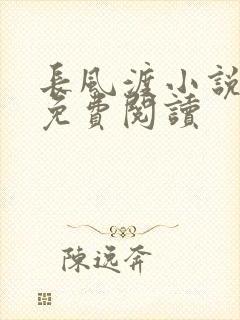 長風渡小說
免費閱讀
陳逸奔